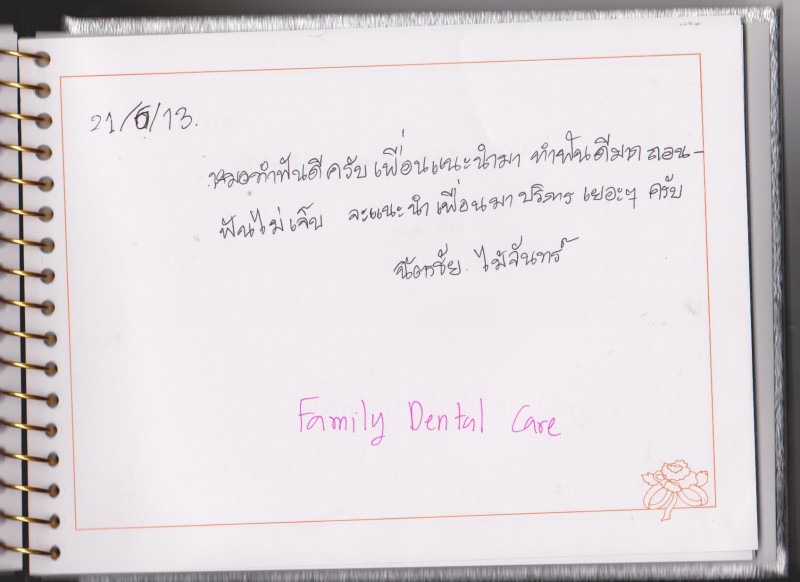 21/6/13.
หมอทำฟันดีครับ เพื่อนแนะนำมา ทำฟันดีมาก ถอน-
ฟันไม่เจ็บ จะแนะนำเพื่อนมาบริการเยอะๆ ครับ
ฉัตรชัย ไม้จันทร์
Family Dental Care